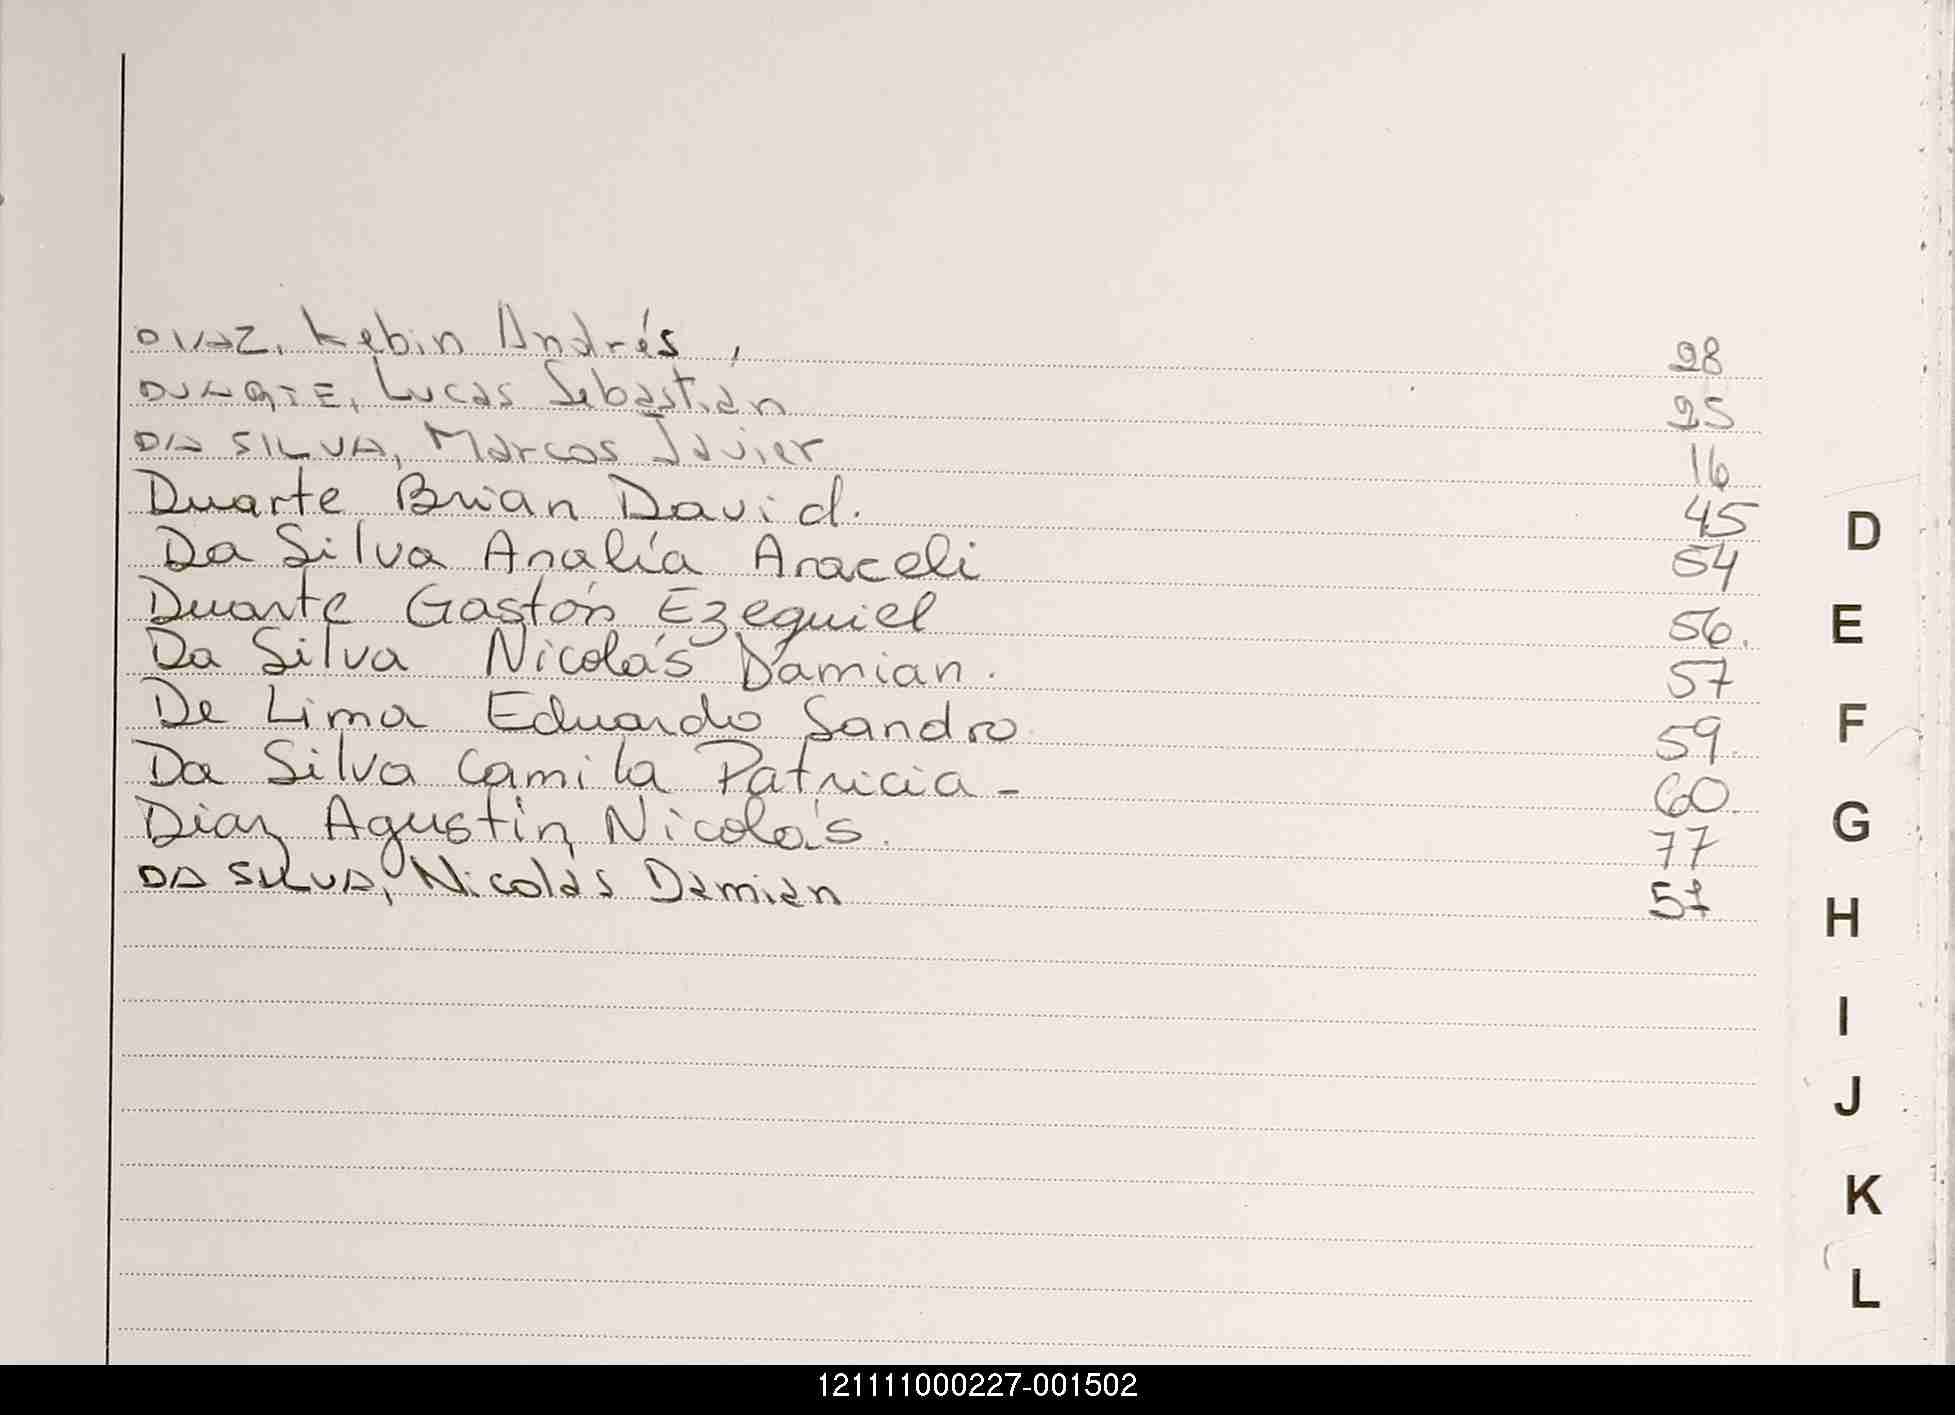 DIAZ, Kebin Andrés, 28
DUARTE, Lucas Sebastián 25
DA SILVA, Marcos Javier 16
Duarte Brian David. 45
Da Silva Analía Araceli 54
Duarte Gastón Ezequiel 56.
Da Silva Nicolás Damian. 57
De Lima Eduardo Sandro 59.
Da Silva Camila Patricia - 60.
Diaz Agustín Nicolás. 77
DA SILVA, Nicolás Damian 57
D
E
F
G
H
I
J
K
L
121111000227-001502